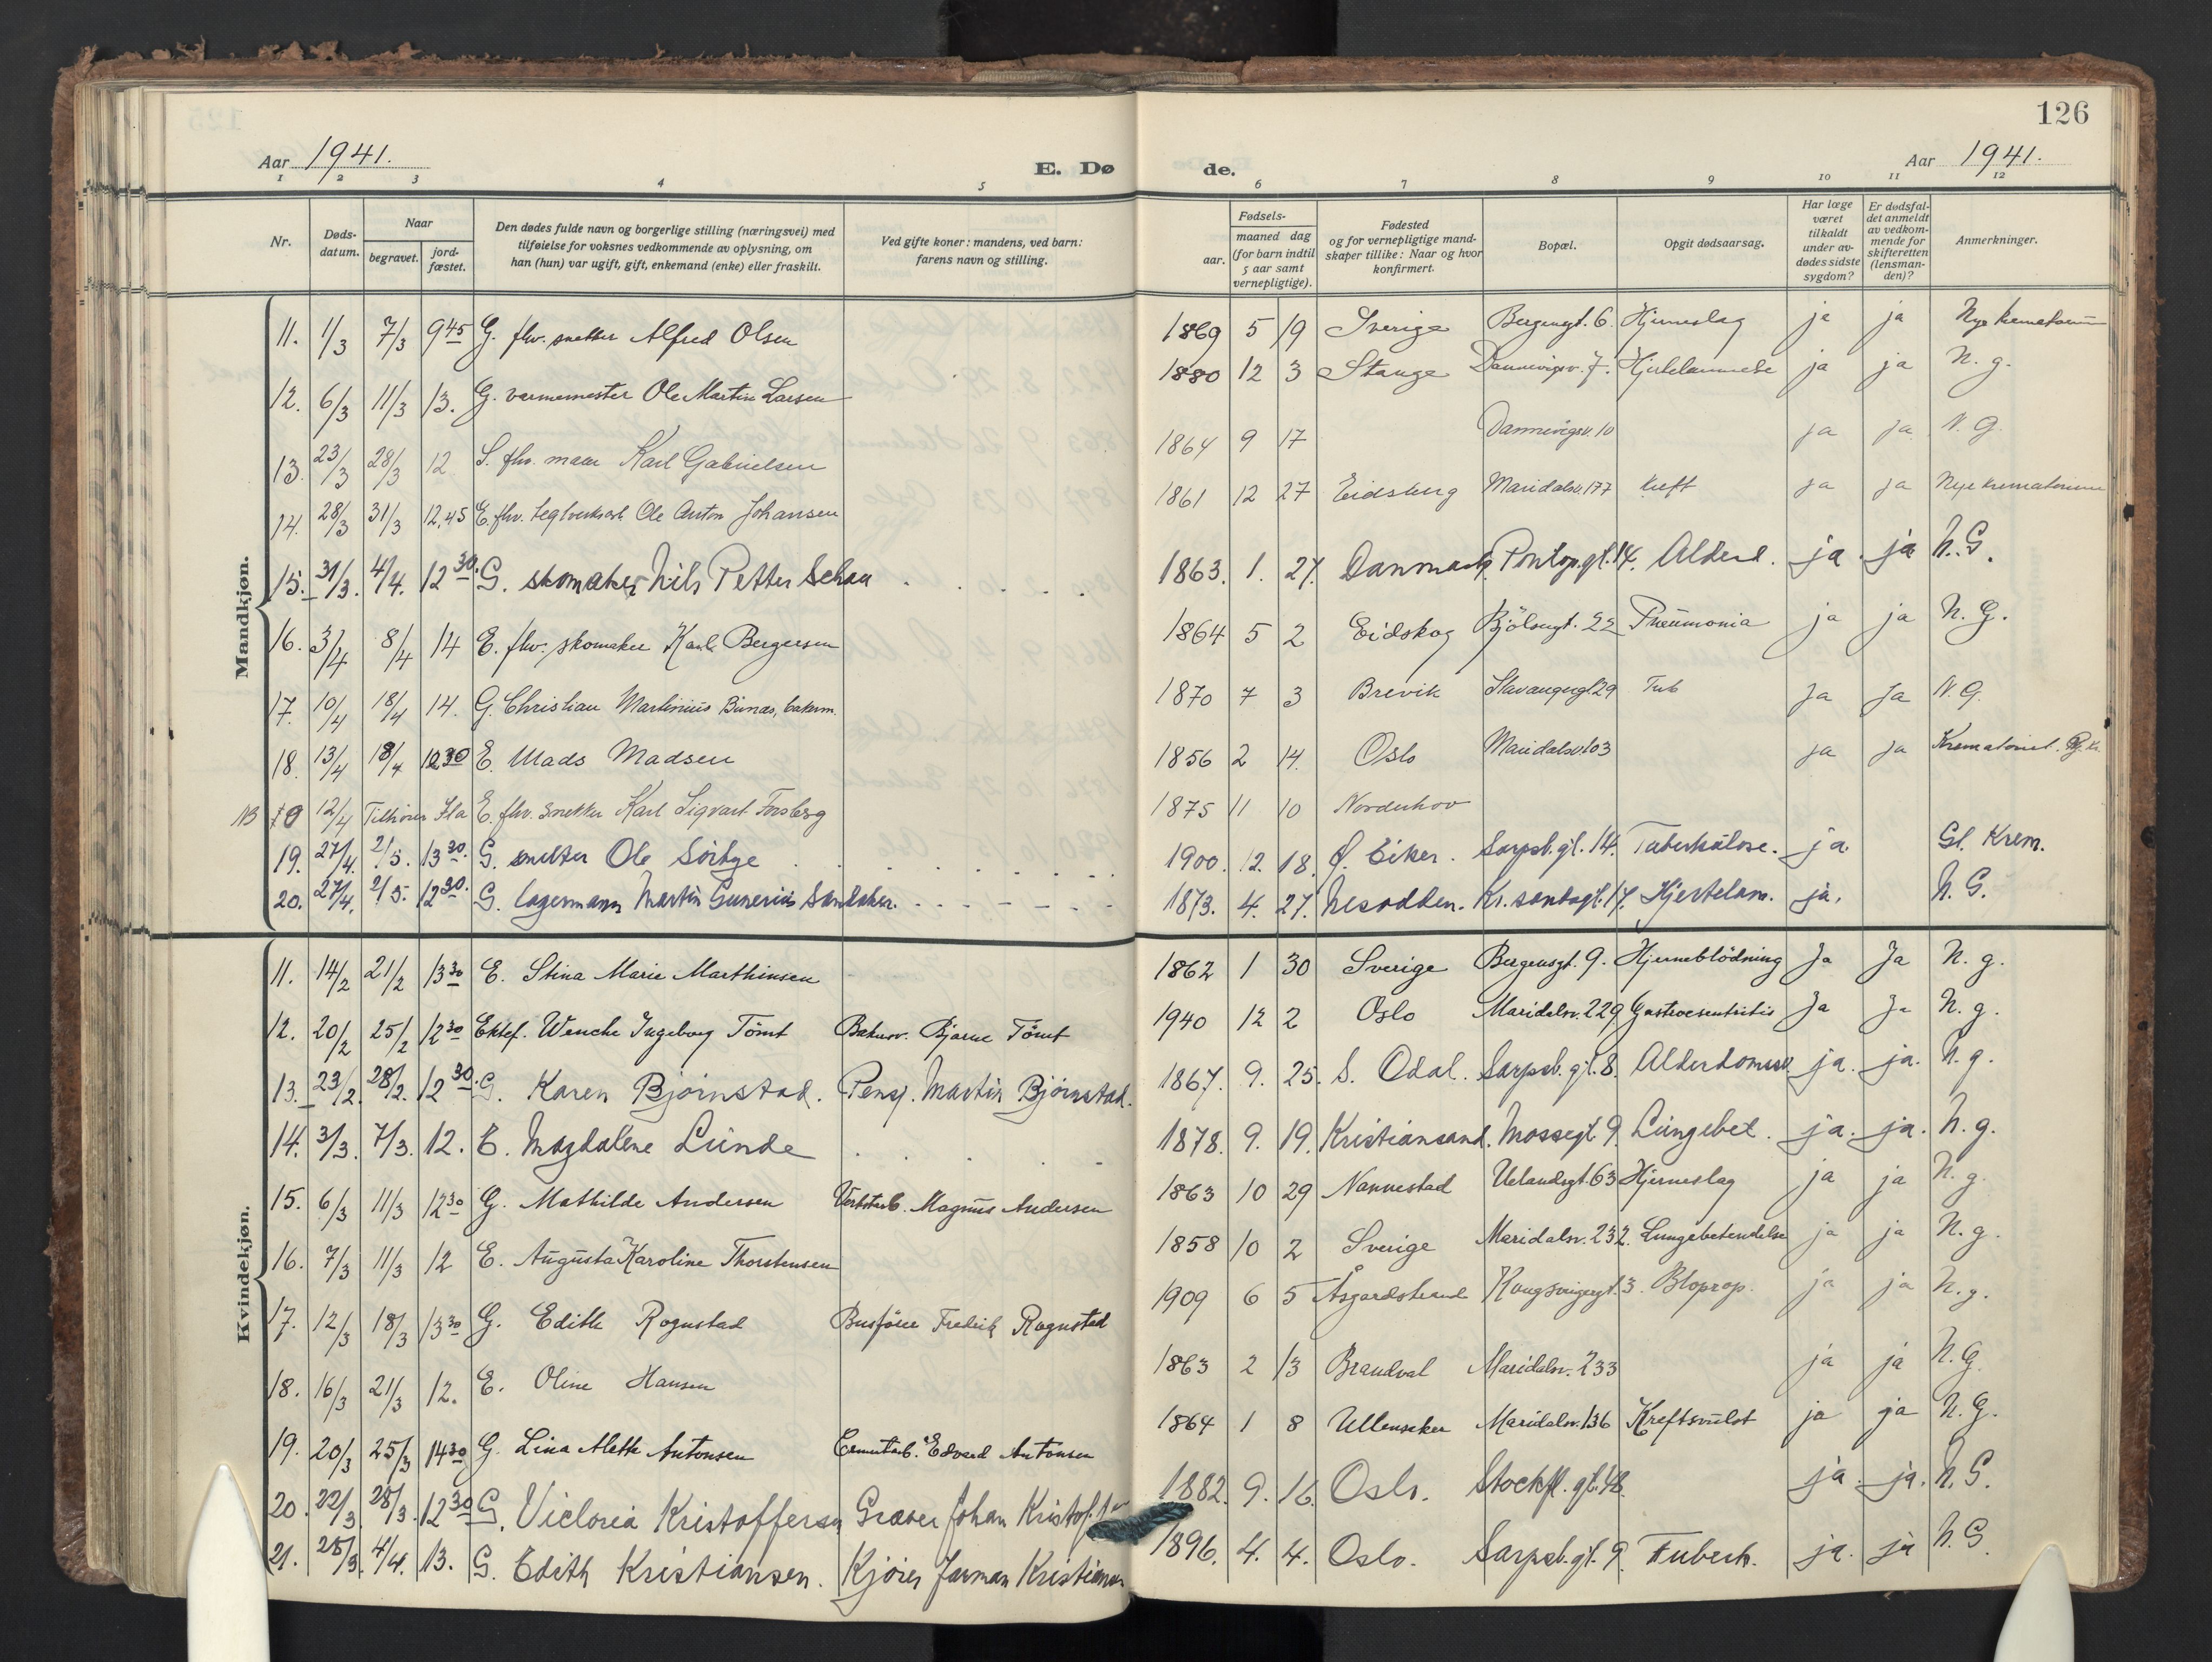 126
Aar 1941.
E. Dø de.
Aar 1941.
1 2 3 4 5 6 7 8 9 10 11 12
Nr.
Døds-datum.
Naar
begravet.
jord-fæstet.
Den dødes fulde navn og borgerlige stilling (næringsvei) med
tilføielse for voksnes vedkommende av oplysning, om
han (hun) var ugift, gift, enkemand (enke) eller fraskilt.
Ved gifte koner: mandens, ved barn:
farens navn og stilling.
Fødsels-
aar.
maaned dag
(for barn indtil
5 aar samt
vernepligtige).
Fødested
og for vernepligtige mand-
skaper tillike: Naar og hvor
konfirmert.
Bopæl.
Opgit dødsaarsag.
Har læge
været
tilkaldt
under av-
dødes sidste
sygdom?
Er dødsfal-
det anmeldt
av vedkom-
mende for
skifteretten
(lensman-
den)?
Anmerkninger.
Mandkjøn.
11. 1/3 7/3 9 45 G. fhv. snekker Alfred Olsen 1869 5 19 Sverige Bergensgt. 6 Hjerneslag ja ja Nye krematorium
12. 6/3 11/3 13. G. varmemester Ole Martin Larsen 1880 12 3 Stange Dannevigsv. 7. Hjertelammelse ja ja N. g.
13. 23/3 28/3 12 S. fhv. maler Karl Gabrielsen 1864 9 17 Dannevigsv. 10 ja ja N. G.
14. 28/3 31/3 12,45 E. fhv. teglverksarb. Ole Anton Johansen 1861 12 27 Eidsberg Maridalsv. 177 kreft ja ja Nye krematorium
15. 31/3. 4/4. 12 30. G. skomaker Nils Petter Schau 1863. 1. 27. Danmark. Pontop.gt. 14. Alderd. ja. ja N. G.
16. 3/4 8/4 14 E. fhv. skomaker Karl Bergersen 1864 5 2 Eidskog Bjölsengt. 22 Pneumonia ja ja N. G.
17. 10/4 18/4 14. G. Christian Martinius Bunæs, bakerm. 1870 7 3 Brevik Stavangergt. 29 Tub Ja Ja N. G.
18. 13/4 18/4 12 30 E. Mads Madsen 1856 2 14. Oslo Maridalsv. 103 ja ja Krematoriet.
NB 19 12/4 Tilhører Ila E. fhv. snekker Karl Sigvart Forsberg 1875 11 10 Norderhov
19. 27/4. 2/5. 13 30. G. smelter Ole Sörbye 1900. 12. 18. Ø. Eiker. Sarpsb.gt. 14. Tuberkulose. ja. Gl. Krem.
20. 27/4. 2/5. 12 30. G. lagermann Martin Gunerius Sandaker. 1873. 4. 27. Nesodden. Kr.sandsgt. 17. Hjertelam. ja. N. G.
Kvindekjøn.
11. 14/2 21/2 13 30 E. Stina Marie Marthinsen 1862 1 30 Sverige Bergensgt. 9. Hjerneblödning Ja Ja N. g.
12. 20/2 25/2 12 30 Ektef. Wenche Ingeborg Tömt Bakersv. Bjarne Tömt 1940 12 2 Oslo Maridalsv. 229 Gastroenteritis Ja Ja N. g.
13. 23/2. 28/2. 12 30. G. Karen Bjørnstad. Pensj. Martin Bjørnstad. 1867. 9. 25. S. Odal. Sarpsb.gt. 8. Alderdomssv. ja. ja. N. g.
14. 3/3. 7/3. 12. E. Magdalene Lunde 1878. 9. 19. Kristiansand. Mossegt. 9. Lungebet. ja. ja. N. g.
15. 6/3 11/3 12 30 G. Mathilde Andersen Verkstarb. Magnus Andersen 1863 10 29 Nannestad Uelandsgt. 63 Hjerneslag ja ja N. g.
16. 7/3 11/3 12 E. Augusta Karoline Thorstensen 1858 10 2 Sverige Maridalsv. 232. Lungebetendelse ja ja N. g.
17. 12/3 18/3 13 30 G. Edith Rognstad Busfører Fredrik Rognstad 1909 6 5 Åsgardstrand Kongsvingergt. 3. Bloprop. ja ja N. g.
18. 16/3 21/3 12. E. Oline Hansen 1863 2 13 Brandval Maridalsv. 233 ja ja N. G.
19. 20/3 25/3 14 30 G. Lina Meth Antonsen Cementarb. Edvard Antonsen 1864 1 8 Ullensaker Maridalsv. 136 Kreftsvulst ja ja N. G.
20. 22/3. 28/3. 12 30 G. Victoria Kristoffersen Graver Johan Kristof. 1882. 9. 16. Oslo. Stockh.gt. 48. ja. ja. N. G.
21. 28/3. 4/4. 13. G. Edith Kristiansen. Kjører Jarman Kristiansen 1896. 4. 4. Oslo. Sarpsb.gt. 9. Tuberk. ja. ja N. G.